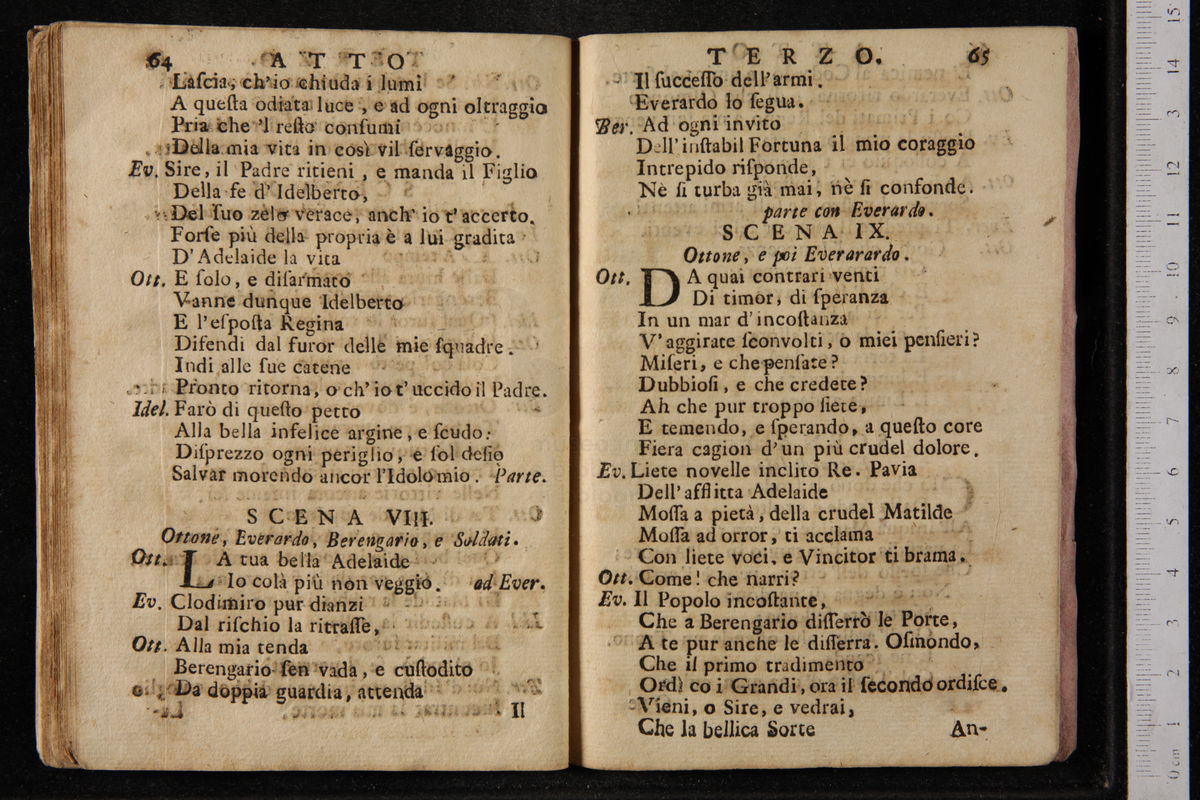 64 ATTO
Laſcia, ch'io chiuda i lumi
A queſta odiata luce, e ad ogni oltraggio
Pria che 'l reſto conſumi
Della mia vita in così vil ſervaggio.
Ev. Sire, il Padre ritieni, e manda il Figlio
Della fe d' Idelberto,
Del ſuo zelo verace, anch' io t' accerto.
Forſe più della propria è a lui gradita
D' Adelaide la vita
Ott. E ſolo, e diſarmato
Vanne dunque Idelberto
E l'eſpoſta Regina
Difendi dal furor delle mie ſquadre.
Indi alle ſue catene
Pronto ritorna, o ch' io t' uccido il Padre.
Idel. Farò di queſto petto
Alla bella infelice argine, e ſcudo:
Diſprezzo ogni periglio, e ſol deſio
Salvar morendo ancor l'Idolo mio. Parte.
SCENA VIII.
Ottone, Everardo, Berengario, e Soldati.
Ott. LA tua bella Adelaide
Io colà più non veggio. ad Ever.
Ev. Clodimiro pur dianzi
Dal riſchio la ritraſſe,
Ott. Alla mia tenda
Berengario ſen vada, e cuſtodito
Da doppia guardia, attenda
Il
TERZO. 65
Il ſucceſſo dell' armi.
Everardo lo ſegua.
Ber. Ad ogni invito
Dell' inſtabil Fortuna il mio coraggio
Intrepido riſponde,
Nè ſi turba già mai, nè ſi confonde.
parte con Everardo.
SCENA IX.
Ottone, e poi Everarardo.
Ott. DA quai contrari venti
Di timor, di ſperanza
In un mar d' incoſtanza
V' aggirate ſconvolti, o miei penſieri?
Miſeri, e che penſate?
Dubbioſi, e che credete?
Ah che pur troppo ſiete,
E temendo, e ſperando, a queſto core
Fiera cagion d' un più crudel dolore.
Ev. Liete novelle inclito Re. Pavia
Dell' afflitta Adelaide
Moſſa a pietà, della crudel Matilde
Moſſa ad orror, ti acclama
Con liete voci, e Vincitor ti brama.
Ott. Come! che narri?
Ev. Il Popolo incoſtante,
Che a Berengario diſſerrò le Porte,
A te pur anche le diſſerra. Oſmondo,
Che il primo tradimento
Ordì co i Grandi, ora il ſecondo ordiſce.
Vieni, o Sire, e vedrai,
Che la bellica Sorte
An-
0 cm 1 2 3 4 5 6 7 8 9 10 11 12 13 14 15